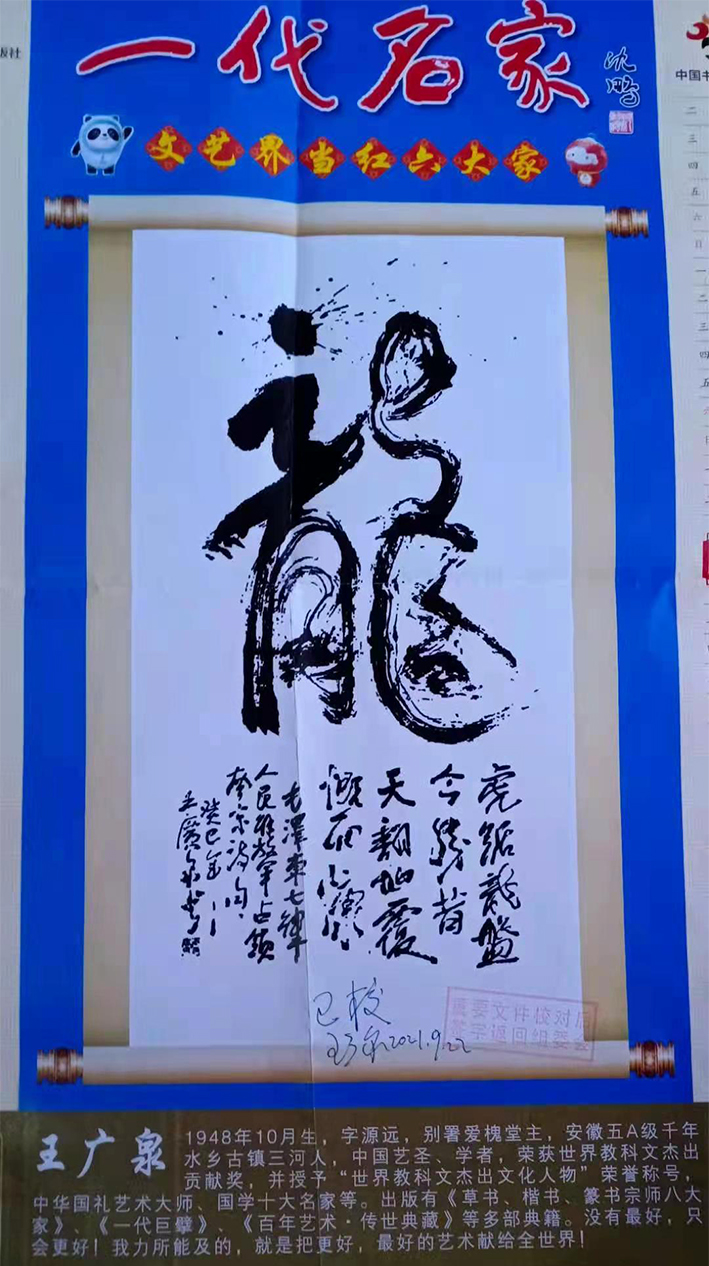 一代名家
沈鹏
文艺界当红六大家
版社
中国书
二
三
四
五
六
日
一
二
三
四
五
六
龍
虎踞龍盤
今勝昔
天翻地覆
慨而慷
毛澤東七律
人民解放軍占領
南京詩句
癸巳年
王廣泉書
已校
王广泉2021.9.22
重要文件校对后
签字返回组委会
王广泉
1948年10月生，字源远，别署爱槐堂主，安徽五A级千年
水乡古镇三河人，中国艺圣、学者，荣获世界教科文杰出
贡献奖，并授予“世界教科文杰出文化人物”荣誉称号，
中华国礼艺术大师、国学十大名家等。出版有《草书、楷书、篆书宗师八大
家》、《一代巨擘》、《百年艺术·传世典藏》等多部典籍。没有最好，只
会更好！我力所能及的，就是把更好，最好的艺术献给全世界！